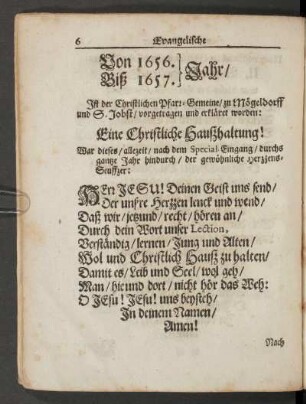 6 Evangelische
Von 1656.
Biß 1657. } Jahr /
Ist der Christlichen Pfarr-Gemeine / zu Mögeldorff
und S. Jobst / vorgetragen und erkläret worden:
Eine Christliche Haußhaltung!
War dieses / allezeit / nach dem Special-Eingang / durchs
gantze Jahr hindurch / der gewöhnliche Hertzens-
Seufftzer:
HErr JESU! Deinen Geist uns send /
Der unsre Hertzen lenck und wend /
Daß wir / jetzund / recht / hören an /
Durch dein Wort unser Lection,
Verständig / lernen / Jung und Alten /
Wol und Christlich Hauß zu halten /
Damit es / Leib und Seel / wol geh /
Man / hie und dort / nicht hör das Weh:
O JEsu! JEsu! uns beysteh /
In deinem Namen /
Amen!
Nach